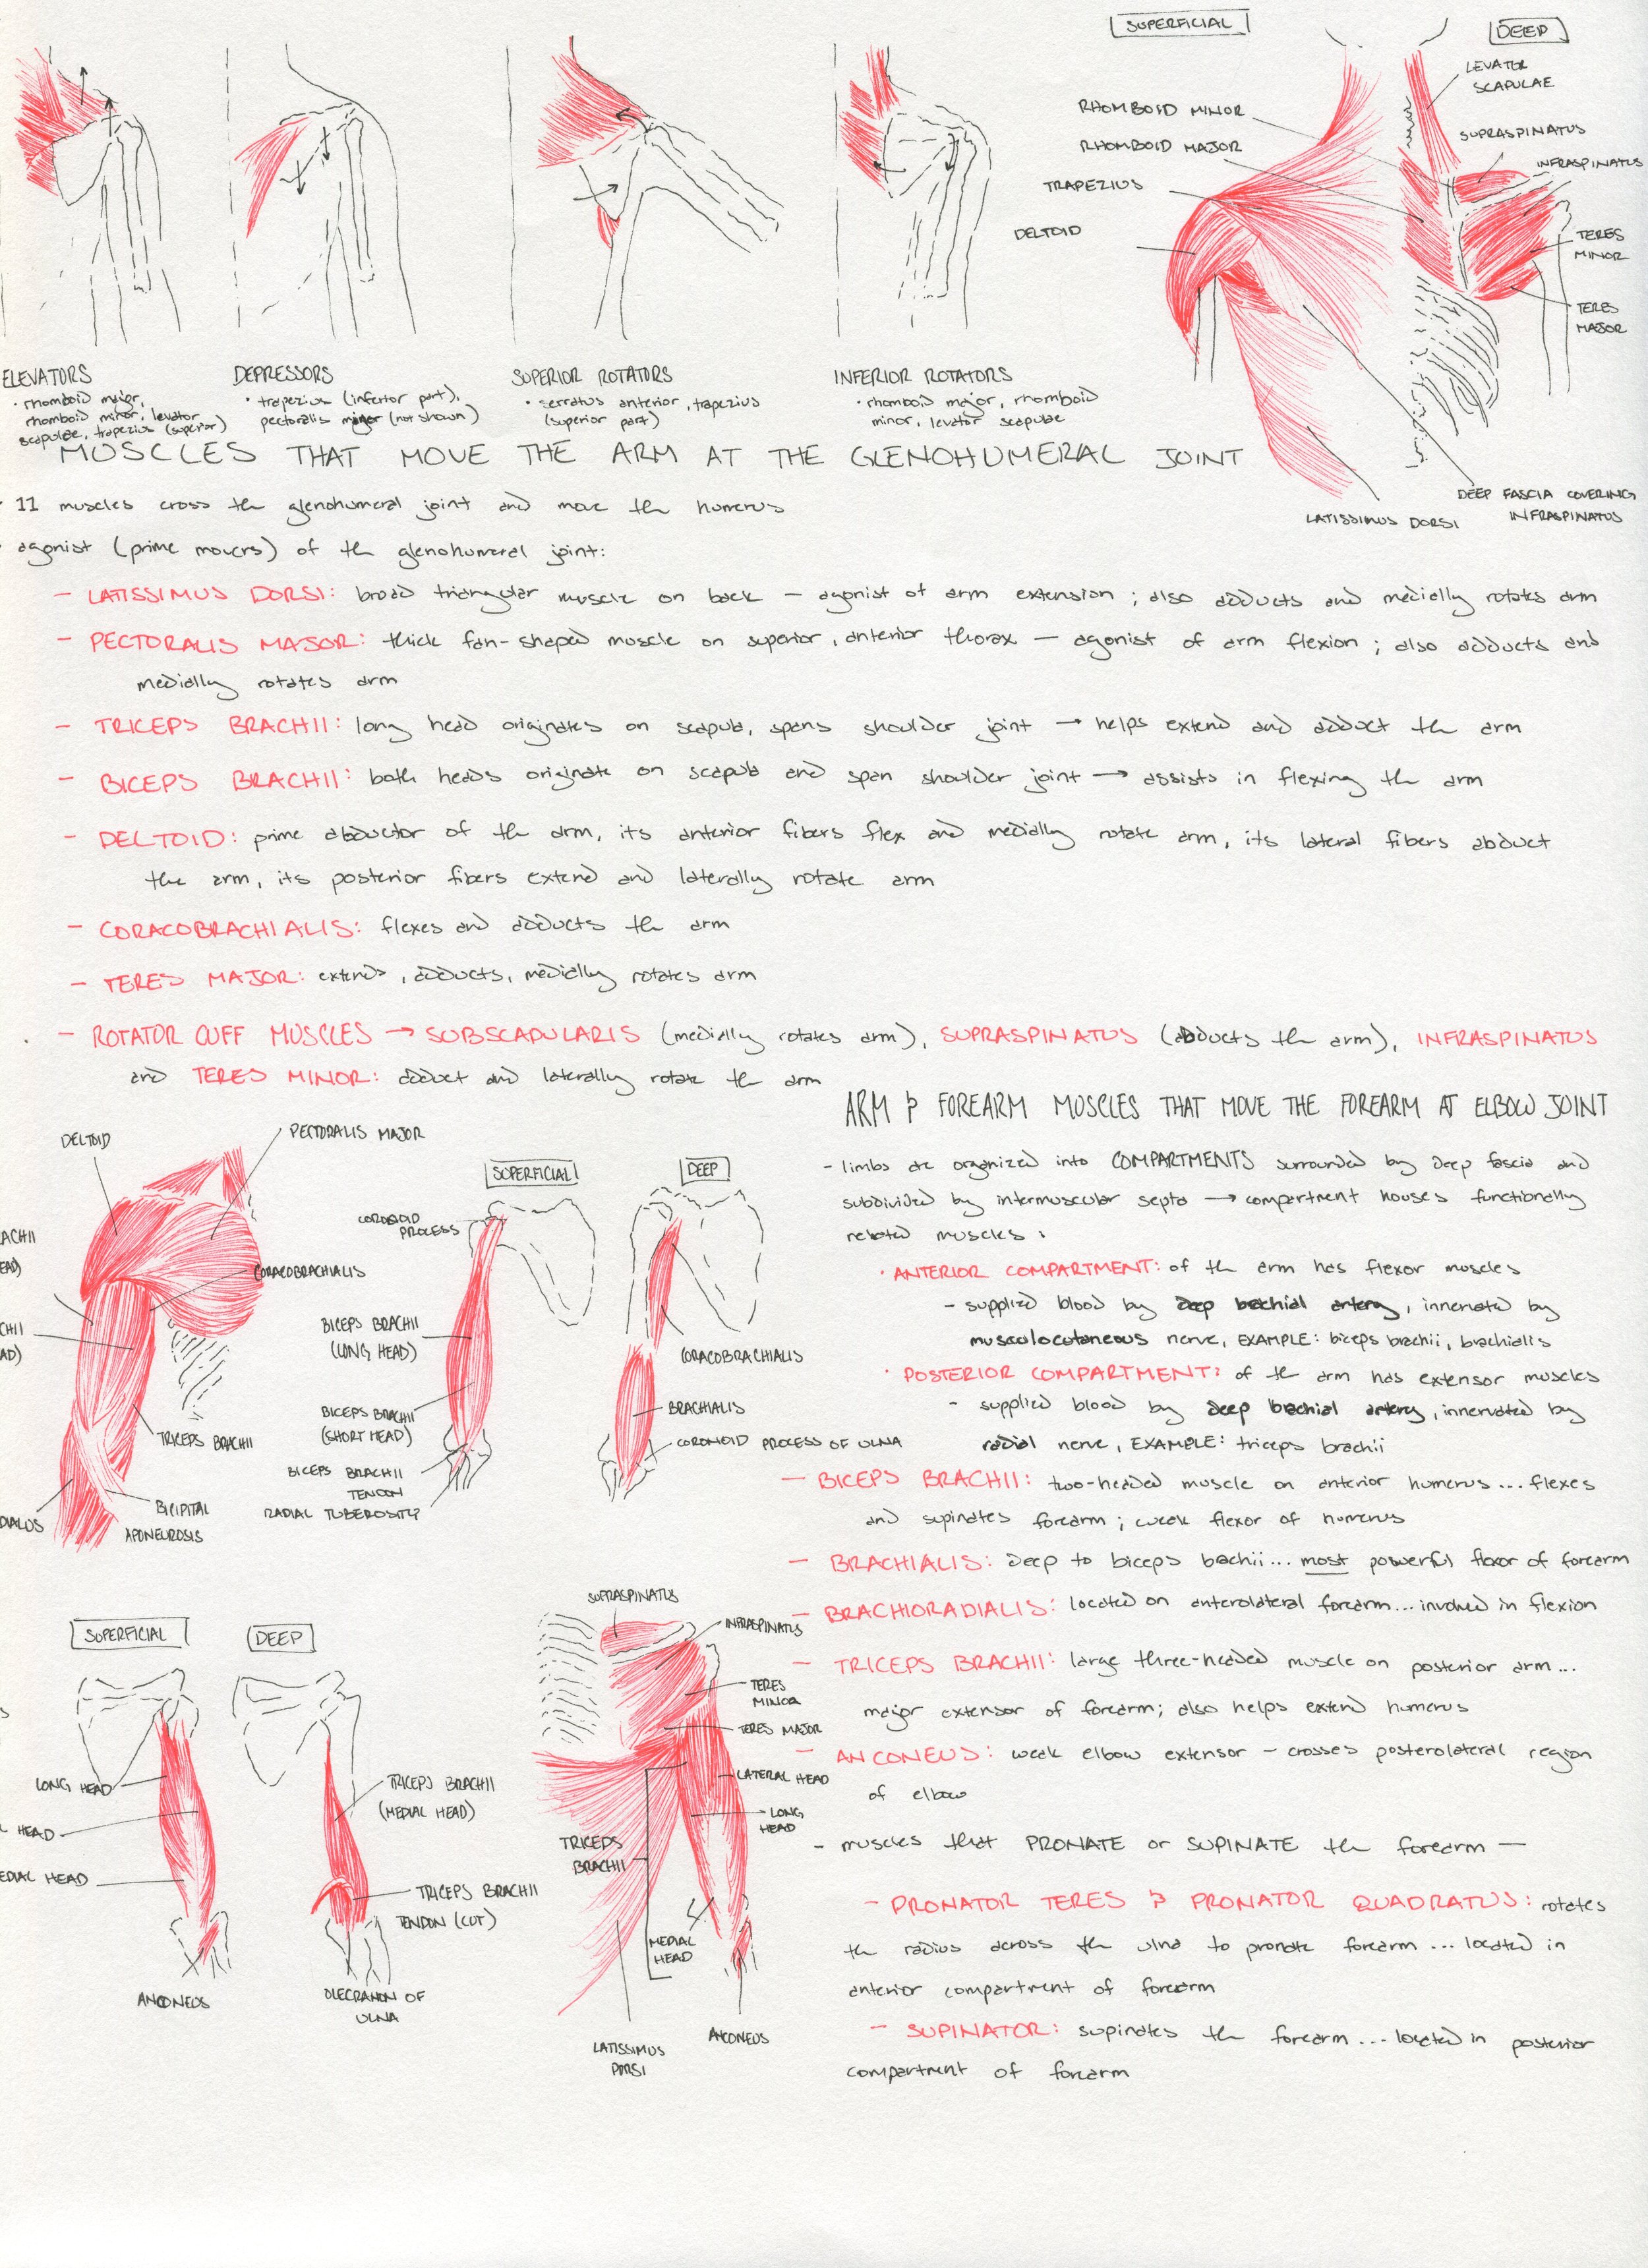 SUPERFICIAL
DEEP
LEVATOR
SCAPULAE
RHOMBOID MINOR
SUPRASPINATUS
RHOMBOID MAJOR
INFRASPINATUS
TRAPEZIUS
DELTOID
TERES
MINOR
TERES
MAJOR
DEEP FASCIA COVERING
INFRASPINATUS
LATISSIMUS DORSI
ELEVATORS
• rhomboid major,
rhomboid minor, levator
scapulae, trapezius (superior)
DEPRESSORS
• trapezius (inferior part),
pectoralis minor (not shown)
SUPERIOR ROTATORS
• serratus anterior, trapezius
(superior part)
INFERIOR ROTATORS
• rhomboid major, rhomboid
minor, levator scapulae
MUSCLES THAT MOVE THE ARM AT THE GLENOHUMERAL JOINT
• 11 muscles cross the glenohumeral joint and move the humerus
• agonist (prime movers) of the glenohumeral joint:
- LATISSIMUS DORSI: broad triangular muscle on back - agonist of arm extension; also adducts and medially rotates arm
- PECTORALIS MAJOR: thick fan-shaped muscle on superior, anterior thorax - agonist of arm flexion; also adducts and
medially rotates arm
- TRICEPS BRACHII: long head originates on scapula, spans shoulder joint → helps extend and adduct the arm
- BICEPS BRACHII: both heads originate on scapula and span shoulder joint → assists in flexing the arm
- DELTOID: prime abductor of the arm, its anterior fibers flex and medially rotate arm, its lateral fibers abduct
the arm, its posterior fibers extend and laterally rotate arm
- CORACOBRACHIALIS: flexes and adducts the arm
- TERES MAJOR: extends, adducts, medially rotates arm
- ROTATOR CUFF MUSCLES → SUBSCAPULARIS (medially rotates arm), SUPRASPINATUS (abducts the arm), INFRASPINATUS
and TERES MINOR: adduct and laterally rotate the arm
DELTOID
PECTORALIS MAJOR
ACHII
EAD)
CORACOBRACHIALIS
CHII
AD)
TRICEPS BRACHII
BICIPITAL
APONEUROSIS
DIALUS
SUPERFICIAL
DEEP
PROCESS
BICEPS BRACHII
(LONG HEAD)
BICEPS BRACHII
(SHORT HEAD)
BICEPS BRACHII
TENDON
RADIAL TUBEROSITY
CORACOBRACHIALIS
BRACHIALIS
CORONOID PROCESS OF ULNA
ARM & FOREARM MUSCLES THAT MOVE THE FOREARM AT ELBOW JOINT
- limbs are organized into COMPARTMENTS surrounded by deep fascia and
subdivided by intermuscular septa → compartment houses functionally
related muscles:
• ANTERIOR COMPARTMENT: of the arm has flexor muscles
- supplied blood by deep brachial artery, innervated by
musculocutaneous nerve, EXAMPLE: biceps brachii, brachialis
• POSTERIOR COMPARTMENT: of the arm has extensor muscles
- supplied blood by deep brachial artery, innervated by
radial nerve, EXAMPLE: triceps brachii
- BICEPS BRACHII: two-headed muscle on anterior humerus... flexes
and supinates forearm; weak flexor of humerus
- BRACHIALIS: deep to biceps bachii... most powerful flexor of forearm
- BRACHIORADIALIS: located on anterolateral forearm... involved in flexion
- TRICEPS BRACHII: large three-headed muscle on posterior arm...
major extensor of forearm; also helps extend humerus
- ANCONEUS: weak elbow extensor - crosses posterolateral region
of elbow
- muscles that PRONATE or SUPINATE the forearm -
- PRONATOR TERES & PRONATOR QUADRATUS: rotates
the radius across the ulna to pronate forearm... located in
anterior compartment of forearm
- SUPINATOR: supinates the forearm... located in posterior
compartment of forearm
SUPERFICIAL
DEEP
S
LONG HEAD
L HEAD
EDIAL HEAD
ANCONEUS
TRICEPS BRACHII
(MEDIAL HEAD)
TRICEPS BRACHII
TENDON (CUT)
OLECRANON OF
ULNA
SUPRASPINATUS
INFRASPINATUS
TERES
MINOR
TERES MAJOR
LATERAL HEAD
LONG
HEAD
TRICEPS
BRACHII
MEDIAL
HEAD
LATISSIMUS
DORSI
ANCONEUS